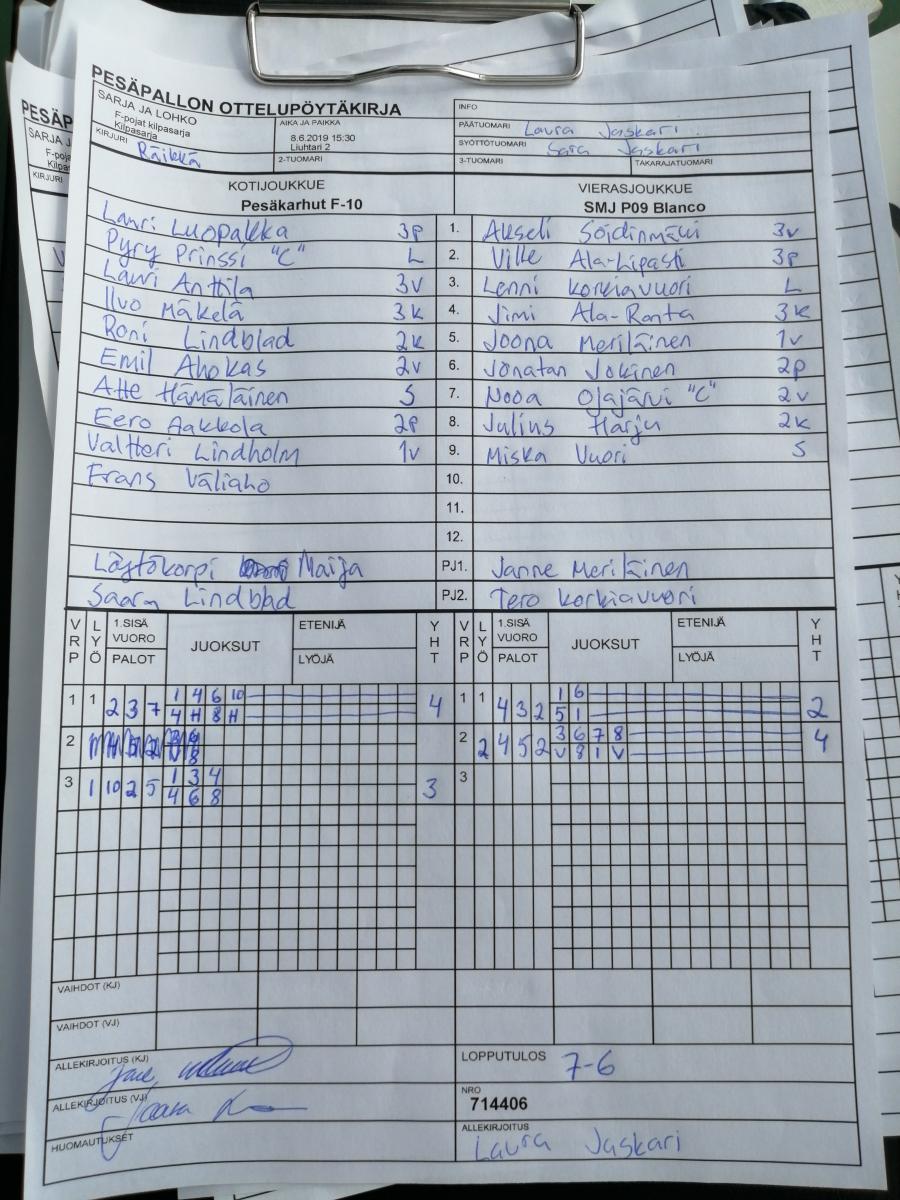 PESÄPALLON OTTELUPÖYTÄKIRJA
SARJA JA LOHKO
F-pojat kilpasarja
Kilpasarja
AIKA JA PAIKKA
8.6.2019 15:30
Liuhtari 2
INFO
PÄÄTUOMARI Laura Jaskari
SYÖTTÖTUOMARI Sara Jaskari
KIRJURI Räikkä
2-TUOMARI
3-TUOMARI
TAKARAJATUOMARI
KOTIJOUKKUE
Pesäkarhut F-10
VIERASJOUKKUE
SMJ P09 Blanco
Lauri Luopakka 3p 1. Akseli Söidinmäki 3v
Pyry Prinssi "C" L 2. Ville Ala-Lipasti 3p
Lauri Anttila 3v 3. Lenni Korkiavuori L
Ilvo Mäkelä 3k 4. Jimi Ala-Ranta 3k
Roni Lindblad 2k 5. Joona Meriläinen 1v
Emil Ahokas 2v 6. Jonatan Jokinen 2p
Atte Hämäläinen S 7. Nooa Ojajärvi "C" 2v
Eero Aakkola 2p 8. Julius Harju 2k
Valtteri Lindholm 1v 9. Miska Vuori S
Frans Väliaho 10.
11.
12.
Löytökorpi Maija PJ1. Janne Meriläinen
Saara Lindblad PJ2. Tero Korkiavuori
VRP LYÖ 1.SISÄ VUORO PALOT JUOKSUT ETENIJÄ LYÖJÄ YHT VRP LYÖ 1.SISÄ VUORO PALOT JUOKSUT ETENIJÄ LYÖJÄ YHT
1 1 2 3 7 1 4 6 10 4 1 1 4 3 2 1 6 2
4 H 8 H 5 1
2 2 2 4 5 2 3 6 7 8 4
V 8 1 V
3 1 10 2 5 1 3 4 3 3
4 6 8
VAIHDOT (KJ)
VAIHDOT (VJ)
ALLEKIRJOITUS (KJ)
LOPPUTULOS 7-6
ALLEKIRJOITUS (VJ)
NRO
714406
HUOMAUTUKSET
ALLEKIRJOITUS
Laura Jaskari